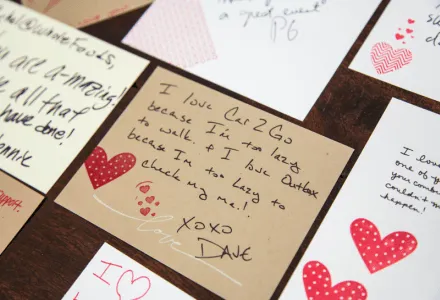 a great event
P6
@wholefoods,
you are a-mazing!
all that
have done!
nnie
I love Car2Go
because I'm too lazy
to walk. & I love Outbox
because I'm too lazy to
check my me.!
XOXO
DAVE
love
I love
one of y
your comb
couldn't m
happen!
I